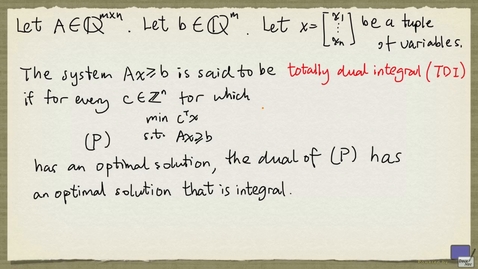 Let A ∈ ℚ^{m×n}. Let b ∈ ℚ^m. Let x = [x₁ ⋮ xₙ] be a tuple of variables.
The system Ax ≥ b is said to be totally dual integral (TDI)
if for every c ∈ ℤⁿ for which
min cᵀx
(P) s.t. Ax ≥ b
has an optimal solution, the dual of (P) has
an optimal solution that is integral.